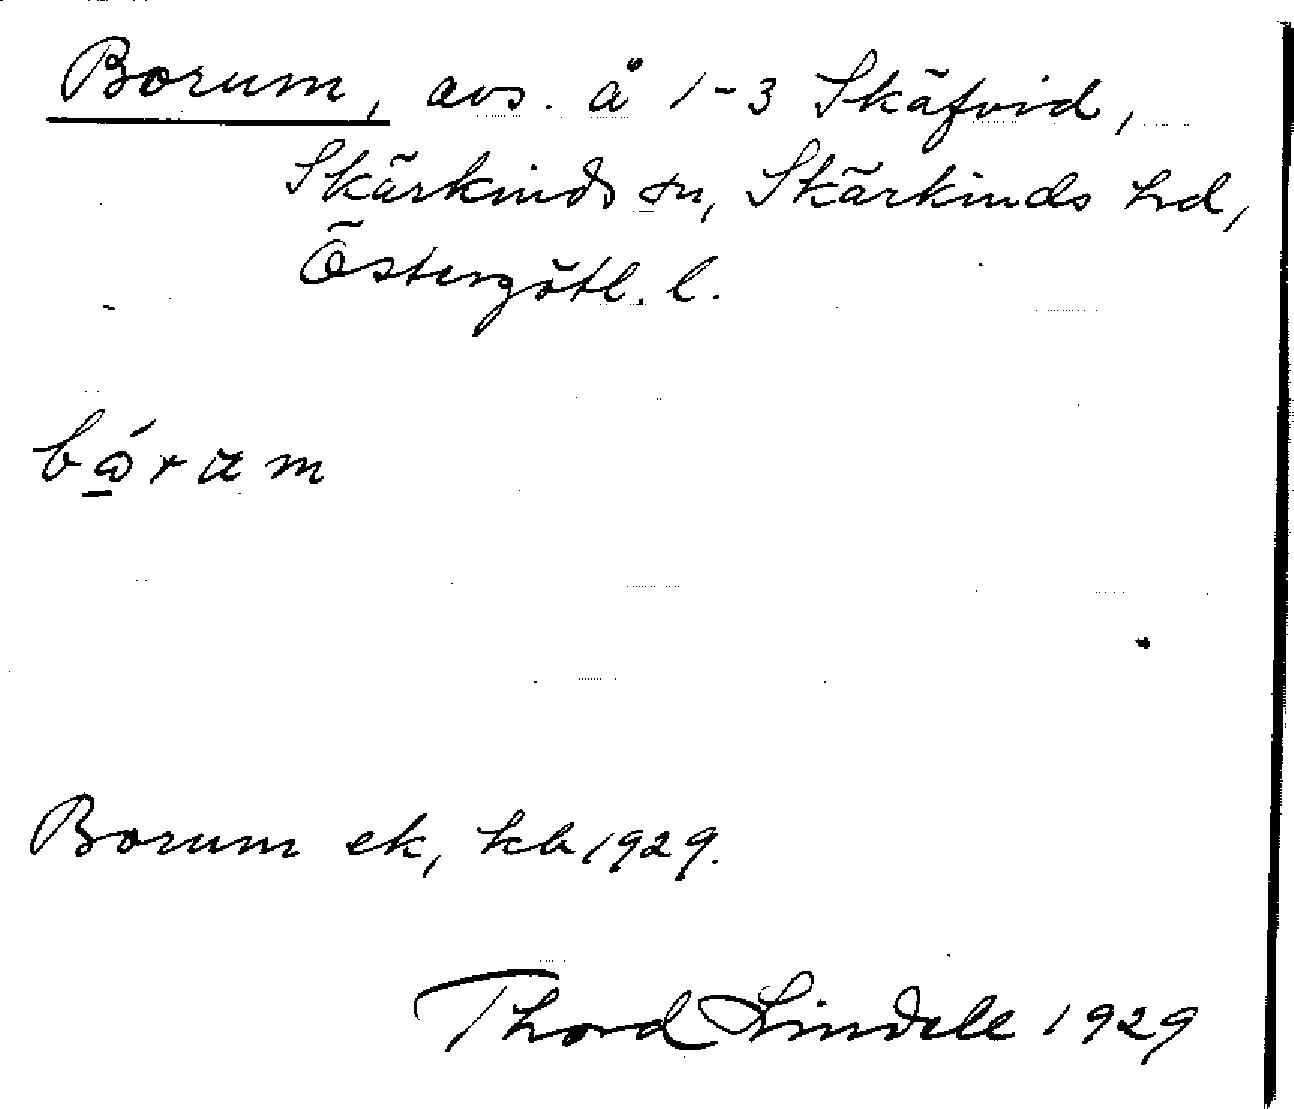 Borum, avs. å 1-3 Skäfvid,
Skärkinds sn, Skärkinds hd,
Östergötl. l.
Borum ek, kb 1929.
Thord Lindele 1929